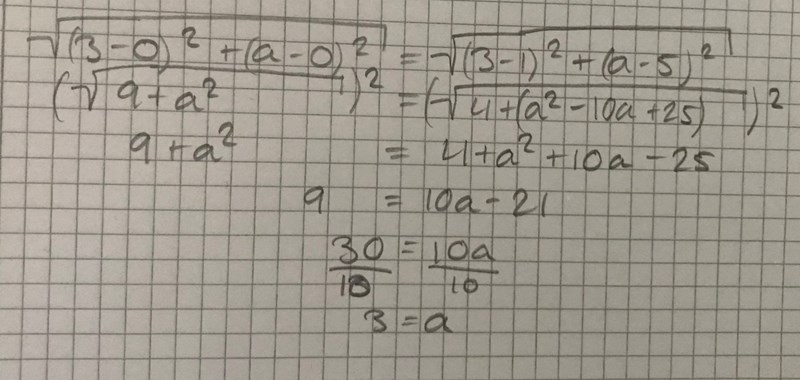 √(3-0)² + (a-0)² = √(3-1)² + (a-5)²
(√9+a²)² = (√4+(a²-10a+25))²
9+a² = 4+a²+10a-25
9 = 10a-21
30/10 = 10a/10
3 = a